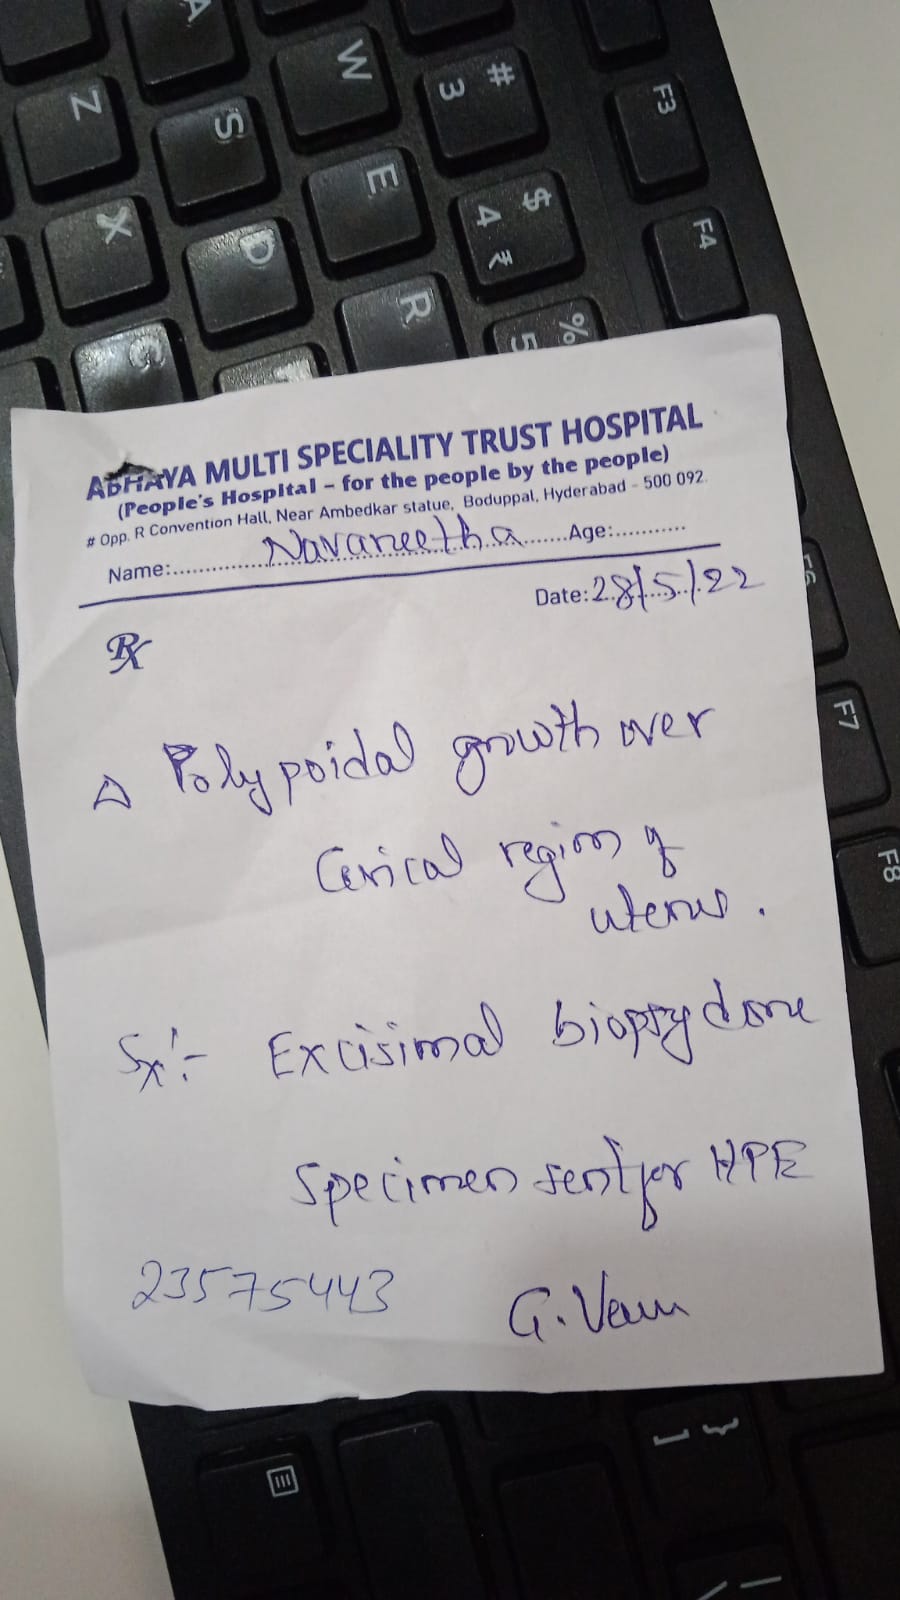 A
Z
S
W
# 3
F3
X
D
E
$ 4 ₹
F4
C
R
% 5
ABHAYA MULTI SPECIALITY TRUST HOSPITAL
(People's Hospital – for the people by the people)
# Opp. R Convention Hall, Near Ambedkar statue, Boduppal, Hyderabad - 500 092.
Name:..............Navaneetha.......Age:...........
Date:28/5/22
Rx
F6
F7
F8
Δ Polypoidal growth over
Cervical region of
uterus.
Sx:- Excisional biopsy done
Specimen sent for HPE
23575443
G.
] }